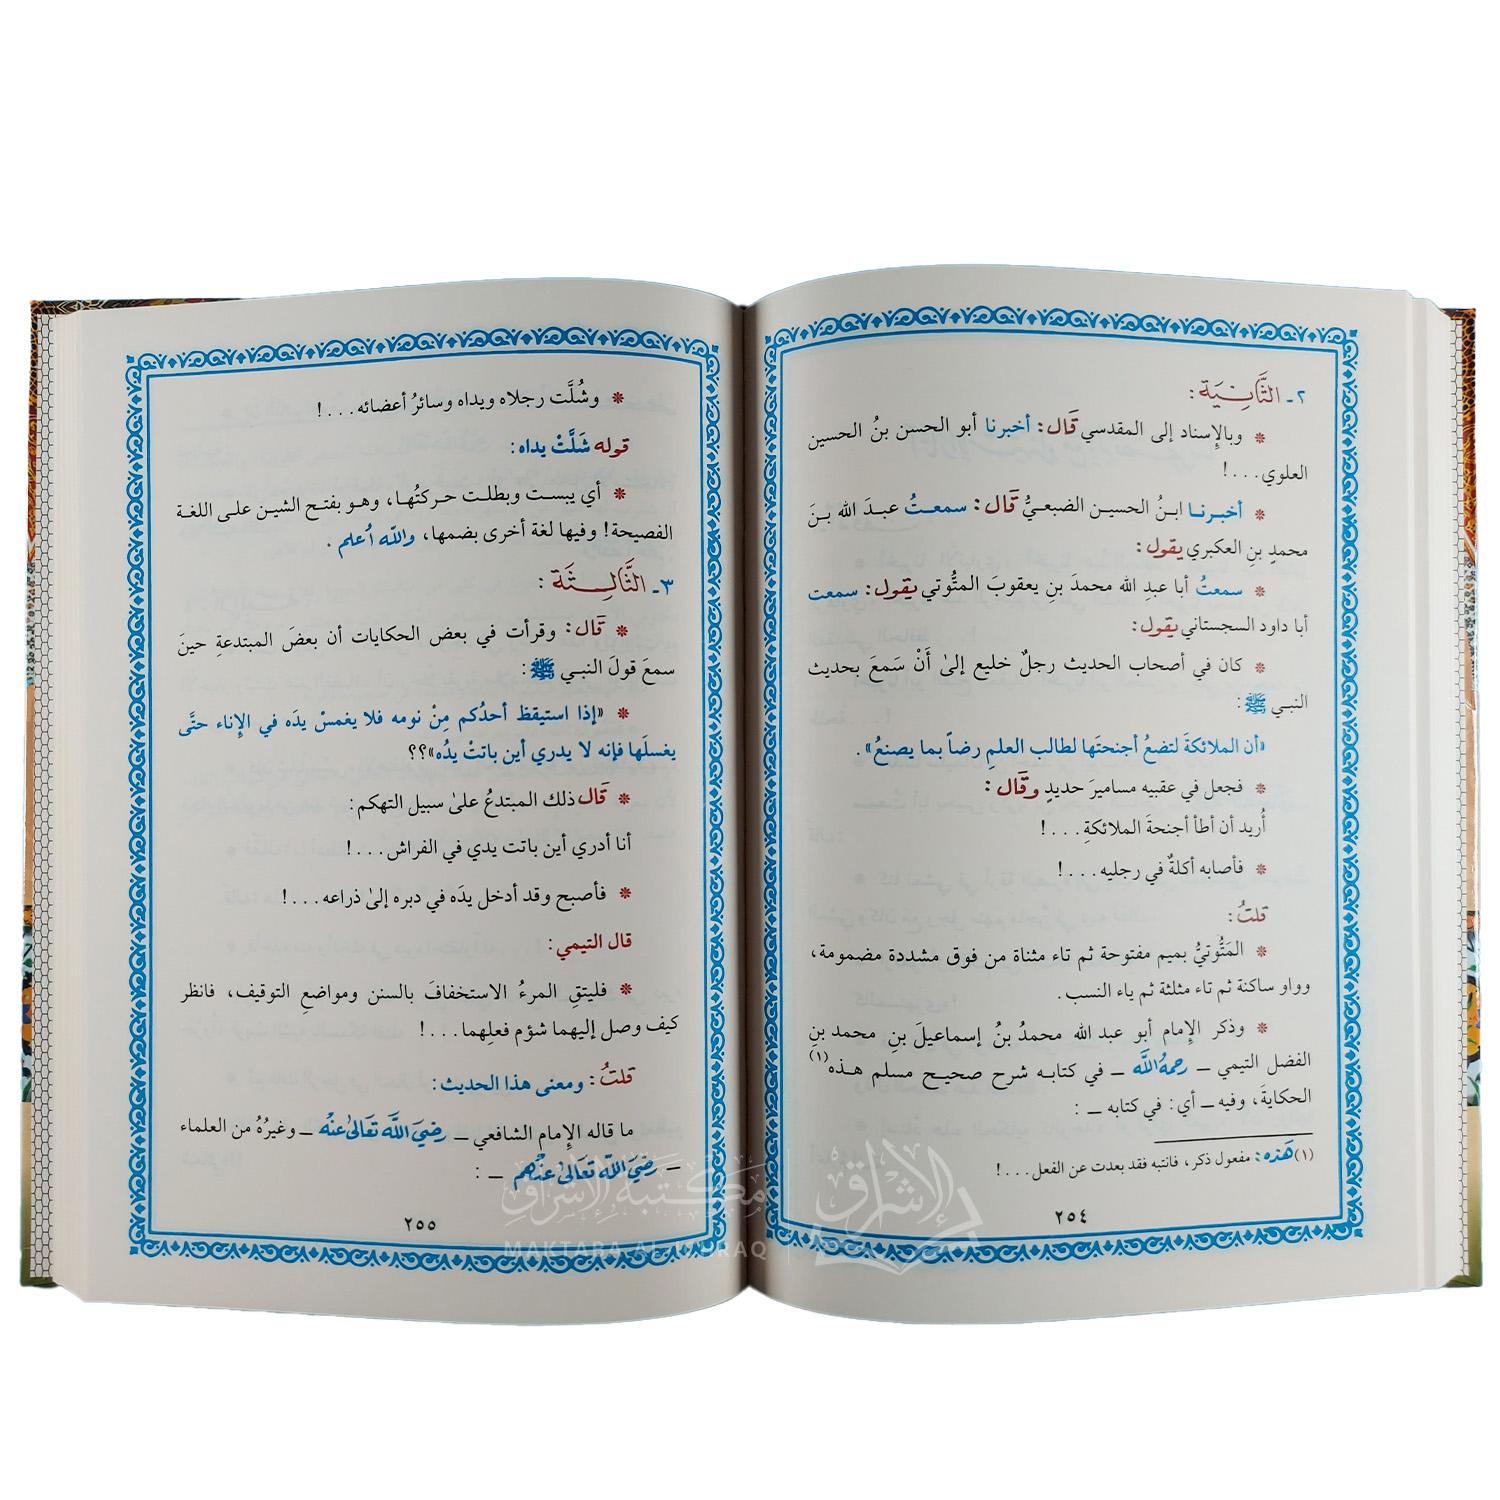 ٢ـ الثَّانِيَة :
* وبالإسناد إلى المقدسي قَال: أخبرنا أبو الحسن بنُ الحسين
العلوي...!
* أخبرنا ابنُ الحسين الضبعيُّ قَال: سمعتُ عبدَ الله بنَ
محمدِ بنِ العكبري يقول:
* سمعتُ أبا عبدِ الله محمدَ بنِ يعقوبَ المتُّوتي يقول: سمعت
أبا داود السجستاني يقول:
* كان في أصحاب الحديث رجلٌ خليع إلىٰ أَنْ سَمعَ بحديث
النبي ﷺ:
«أن الملائكةَ لتضعُ أجنحتَها لطالب العلمِ رضاً بما يصنعُ».
* فجعل في عقبيه مساميرَ حديدٍ وقَال:
أُريد أن أطأ أجنحةَ الملائكةِ...!
* فأصابه أكلةٌ في رجليه...!
قلتُ:
* المَتُّوتيُّ بميم مفتوحة ثم تاء مثناة من فوق مشددة مضمومة،
وواو ساكنة ثم تاء مثلثة ثم ياء النسب.
* وذكر الإمام أبو عبد الله محمدُ بنُ إسماعيلَ بنِ محمد بنِ
الفضل التيمي ـ رحمهُ الله ـ في كتابه شرح صحيح مسلم هذه(١)
الحكايةَ، وفيه ـ أي: في كتابه ـ :
(١) هَذه: مفعول ذكر، فانتبه فقد بعدت عن الفعل...!
٢٥٤
* وشُلَّت رجلاه ويداه وسائرُ أعضائه...!
قوله شَلَّتْ يداه:
* أي يبست وبطلت حركتُها، وهو بفتح الشين على اللغة
الفصيحة! وفيها لغة أخرى بضمها، والله أعلم.
٣ـ الثَّالِثَة :
* قَال: وقرأت في بعض الحكايات أن بعضَ المبتدعةِ حينَ
سمعَ قولَ النبي ﷺ:
* «إذا استيقظ أحدُكم مِنْ نومه فلا يغمسْ يدَه في الإناء حتَّى
يغسلَها فإنه لا يدري أين باتتْ يدُه»؟؟
* قَال ذلك المبتدعُ علىٰ سبيل التهكم:
أنا أدري أين باتت يدي في الفراش...!
* فأصبح وقد أدخل يدَه في دبره إلىٰ ذراعه...!
قال التيمي:
* فليتقِ المرءُ الاستخفافَ بالسنن ومواضعِ التوقيف، فانظر
كيف وصل إليهما شؤم فعلِهما...!
قلتُ: ومعنى هذا الحديث:
ما قاله الإمام الشافعي ـ رضيَ اللهُ تعَالىٰ عنْه ـ وغيرُهُ من العلماء
ـ رضيَ اللهُ تعَالىٰ عنْهم ـ :
٢٥٥
مكتبة الإشراق
MAKTABA AL-ISHRAQ
الإشراق